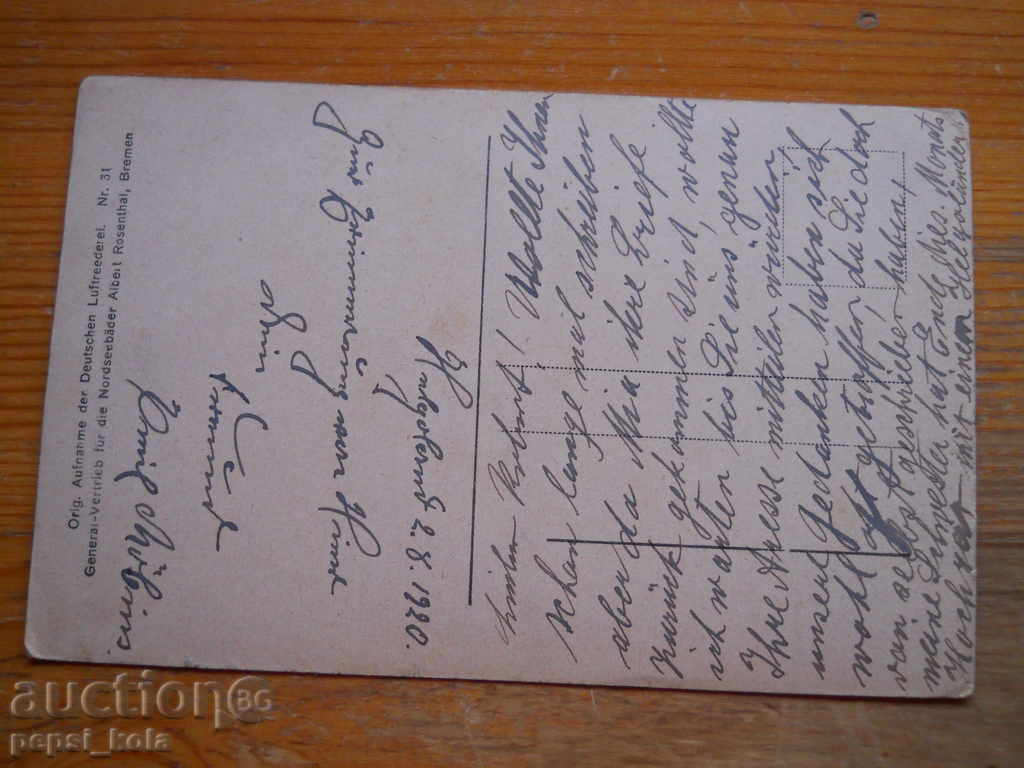 Orig. Aufnahme der Deutschen Luftreederei. Nr. 31
General-Vertrieb für die Nordseebäder Albert Rosenthal, Bremen
Zur Erinnerung von
Dein
Freund
Emil
Helgoland 2.8.1920.
Lieber Robert! Wollte Ihnen
schon lange mal schreiben
aber da Ihre Briefe
zurück gekommen sind, wollte
ich warten bis Sie uns genau
Ihre Adresse mitteilen würden,
unsere Gedanken haben sich
wohl oft getroffen, da Sie doch
von selbst geschrieben haben!
meine Schwester hat Ende dies. Monats
Hochzeit mit einem Helgoländer.
auction86
pepsi_kola